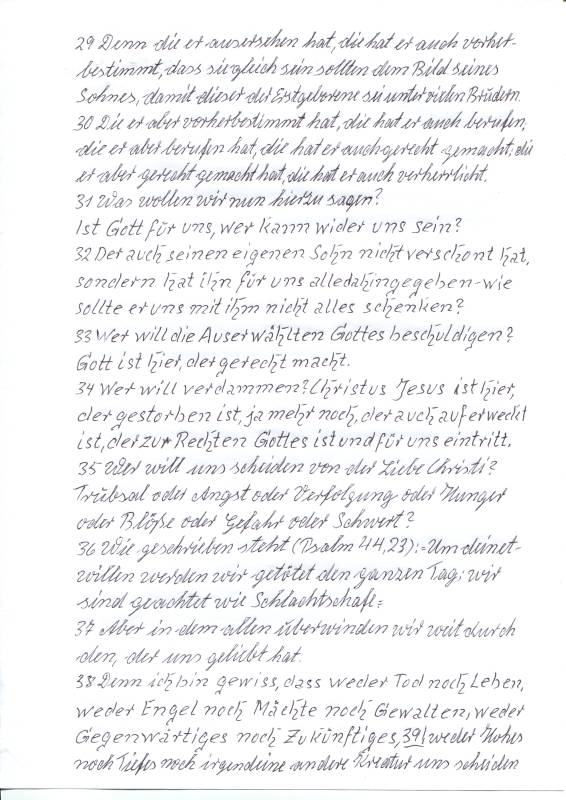 29 Denn die er ausersehen hat, die hat er auch vorher-
bestimmt, dass sie gleich sein sollten dem Bild seines
Sohnes, damit dieser der Erstgeborene sei unter vielen Brüdern.
30 Die er aber vorherbestimmt hat, die hat er auch berufen;
die er aber berufen hat, die hat er auch gerecht gemacht; die
er aber gerecht gemacht hat, die hat er auch verherrlicht.
31 Was wollen wir nun hierzu sagen?
Ist Gott für uns, wer kann wider uns sein?
32 Der auch seinen eigenen Sohn nicht verschont hat,
sondern hat ihn für uns alle dahingegeben - wie
sollte er uns mit ihm nicht alles schenken?
33 Wer will die Auserwählten Gottes beschuldigen?
Gott ist hier, der gerecht macht.
34 Wer will verdammen? Christus Jesus ist hier,
der gestorben ist, ja mehr noch, der auch auferweckt
ist, der zur Rechten Gottes ist und für uns eintritt.
35 Wer will uns scheiden von der Liebe Christi?
Trübsal oder Angst oder Verfolgung oder Hunger
oder Blöße oder Gefahr oder Schwert?
36 Wie geschrieben steht (Psalm 44,23): = Um deinet-
willen werden wir getötet den ganzen Tag; wir
sind geachtet wie Schlachtschafe. =
37 Aber in dem allen überwinden wir weit durch
den, der uns geliebt hat.
38 Denn ich bin gewiss, dass weder Tod noch Leben,
weder Engel noch Mächte noch Gewalten, weder
Gegenwärtiges noch Zukünftiges, 39| weder Hohes
noch Tiefes noch irgendeine andere Kreatur uns scheiden